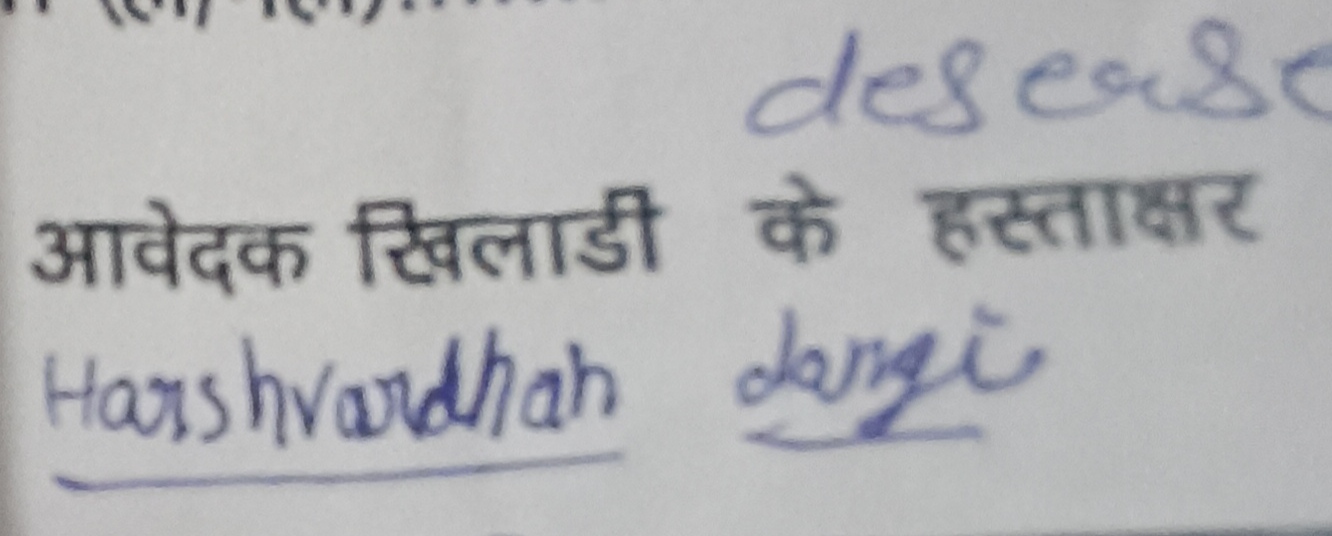 desease
आवेदक खिलाडी के हस्ताक्षर
Harshvardhan dangi